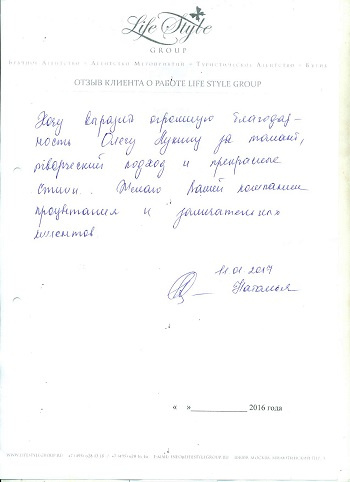 Life Style
GROUP
Агентство Мероприятий • Туристическое Агентство •
ОТЗЫВ КЛИЕНТА О РАБОТЕ LIFE STYLE GROUP
Хочу выразить огромную благодар-
ность Олегу Лукину за талант,
творческий подход и прекрасные
стихи. Желаю Вашей компании
процветания и замечательных
клиентов.
11 01 2017
Наталья
« » 2016 года